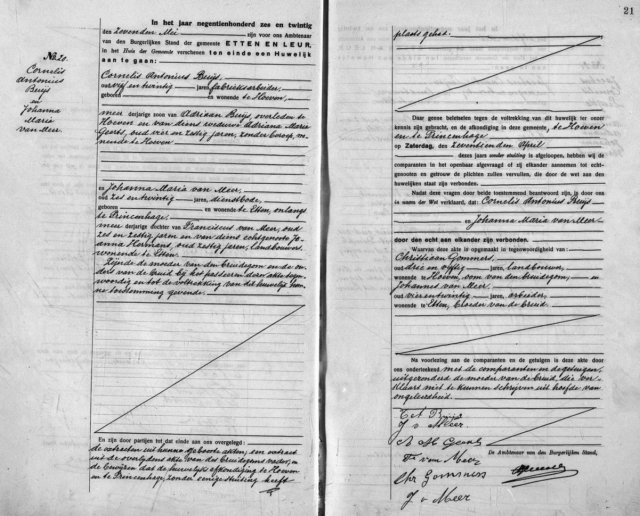 No. 20.
Cornelis
Antonius
Buijs
en
Johanna
Maria
van Meer.
In het jaar negentienhonderd zes en twintig
den zevenden Mei zijn voor ons Ambtenaar
van den Burgerlijken Stand der gemeente ETTEN EN LEUR,
in het Huis der Gemeente verschenen ten einde een Huwelijk
aan te gaan:
Cornelis Antonius Buijs,
oud vier en twintig jaren, fabrieksarbeider,
geboren en wonende te Hoeven,
meerderjarige zoon van Adriaan Buijs, overleden te
Hoeven en van diens weduwe Adriana Maria
Geerts, oud vier en zestig jaren, zonder beroep, wo-
nende te Hoeven
en Johanna Maria van Meer,
oud zes en twintig jaren, dienstbode,
geboren en wonende te Etten, onlangs
te Princenhage,
meerderjarige dochter van Franciscus van Meer, oud
zes en zestig jaren en van diens echtgenoote Jo-
anna Hermans, oud zestig jaren, landbouwers,
wonende te Etten.
Zijnde de moeder van den bruidegom en de ou-
ders van de bruid bij het passeeren dezer akte tegen-
woordig en tot de voltrekking van dit huwelijk hun-
ne toestemming gevende.
En zijn door partijen tot dat einde aan ons overgelegd:
de extracten uit hunne geboorte akten; een extract
uit de overlijdens akte van des bruidegoms vader; en
de bewijzen dat de huwelijksafkondiging te Hoeven
en te Princenhage, zonder eenige stuiting heeft
21
plaats gehad.
Daar geene beletselen tegen de voltrekking van dit huwelijk ter onzer
kennis zijn gebracht, en de afkondiging in deze gemeente, te Hoeven
en te Princenhage
op Zaterdag, zeventienden April
dezes jaars zonder stuiting is afgeloopen, hebben wij de
comparanten in het openbaar afgevraagd of zij elkander aannemen tot echt-
genooten en getrouw de plichten zullen vervullen, die door de wet aan den
huwelijken staat zijn verbonden.
Nadat deze vragen door beide toestemmend beantwoord zijn, is door ons
in naam der Wet verklaard, dat: Cornelis Antonius Buijs
en Johanna Maria van Meer
door den echt aan elkander zijn verbonden.
Waarvan deze akte is opgemaakt in tegenwoordigheid van
Christiaan Gommers,
oud drie en vijftig jaren, landbouwer,
wonende te Hoeven, oom van den bruidegom, en
Johannes van Meer,
oud vier en twintig jaren, arbeider,
wonende te Etten, broeder van de bruid
Na voorlezing aan de comparanten en de getuigen is deze akte door
ons onderteekend met de comparanten en de getuigen,
uitgezonderd de moeder van de bruid die ver-
klaart niet te kunnen schrijven uit hoofde van
ongeleerdheid.
C A Buijs
J v Meer
A M Geerts
Fr van Meer
Chr Gommers
J v Meer
De Ambtenaar van den Burgerlijken Stand,